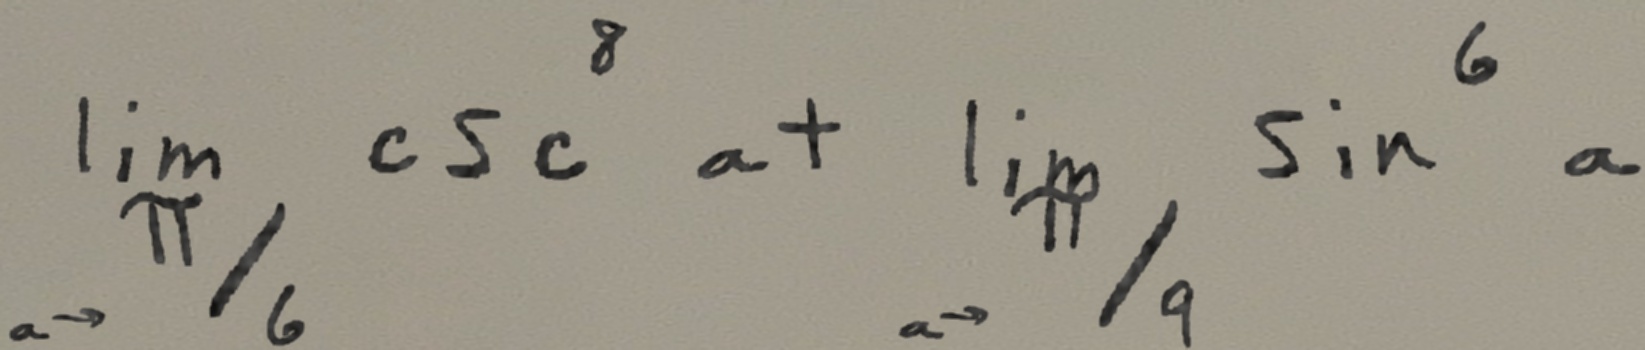 \lim_{a \to \pi/6} \csc^8 a + \lim_{a \to \pi/9} \sin^6 a